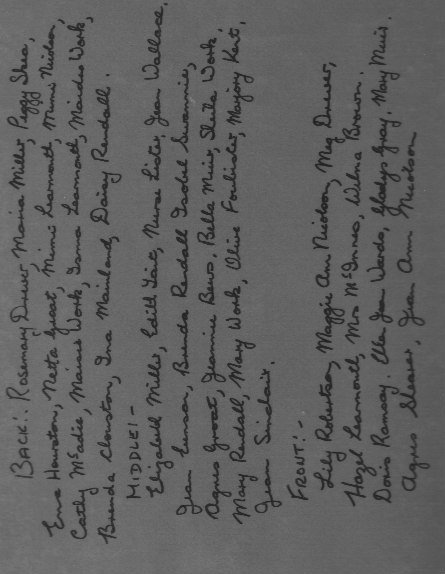 BACK:. Rosemary Drever, Maria Miller, Peggy Shea,
Ena Hourston, Netta Groat, Mimi Learmonth, Mimie Nicolson,
Cathy McEadie, Maisie Work, Isma Learmonth, Maidie Work,
Brenda Clouston, Ina Mainland, Daisy Rendall.
MIDDLE:-
Elizabeth Miller, Edith Tait, Nurse Lister, Jean Wallace,
Jean Eunson, Brenda Rendall Isobel Swannie,
Agnes Groat, Jeannie Bews, Bella Muir, Sheila Work,
Mary Rendall, Mary Work, Olive Foubister, Marjory Kent,
Jean Sinclair.
FRONT:-
Lily Robertson, Maggie Ann Nicolson, Meg Drever,
Hazel Learmonth, Mrs McInnes, Wilma Brown.
Doris Ramsay, Ella Jean Wards, Gladys Gray, Mary Muir.
Agnes Shearer, Jean Ann Nicolson